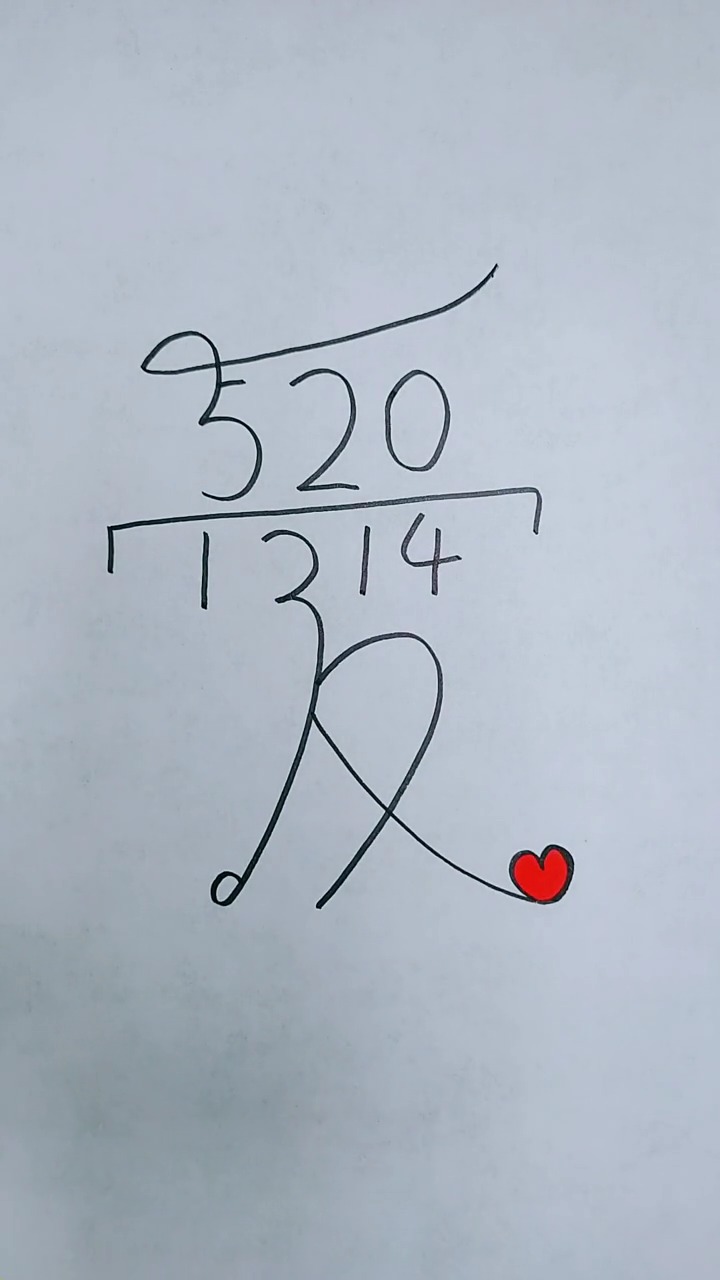 520
1314